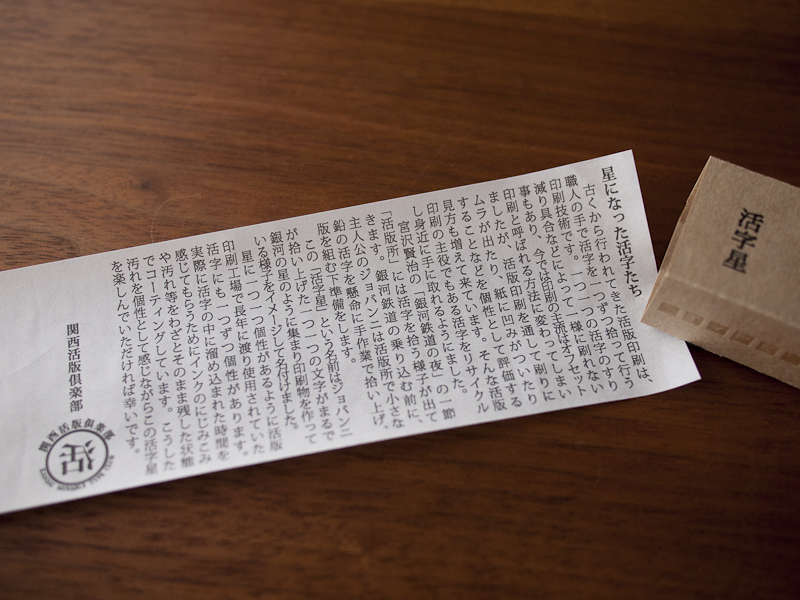 星になった活字たち
古くから行われてきた活版印刷は、
職人の手で活字を一つずつ拾って行う
印刷技術です。一つ一つの活字のすり
減り具合などによって一様に刷れない
事もあり、今では印刷の主流はオフセット
印刷と呼ばれる方法に変わってしまい
ましたが、活版印刷を通して刷りに
ムラが出たり、紙に凹みがついたり
することなどを個性として評価する
見方も増えて来ています。そんな活版
印刷の主役でもある活字をリサイクル
し身近に手に取れるようにしました。
宮沢賢治の「銀河鉄道の夜」の一節
「活版所」には活字を拾う様子が出て
きます。銀河鉄道の乗り込む前に、
主人公のジョバンニは活版所で小さな
鉛の活字を懸命に手作業で拾い上げ、
版を組む下準備をします。
この「活字星」という名前はジョバンニ
が拾い上げた一つ一つの文字がまるで
銀河の星のように集まり印刷物を作って
いる様子をイメージして名付けました。
星に一つ一つ個性があるように活版
印刷工場で長年に渡り使用されていた
活字にも一つずつ個性があります。
実際に活字の中に溜め込まれた時間を
感じてもらうためにインクのにじみこみ
や汚れ等をわざとそのまま残した状態
でコーティングしています。こうした
汚れを個性として感じながらこの活字星
を楽しんでいただければ幸いです。
関西活版倶楽部
関西活版倶楽部
活
活字星